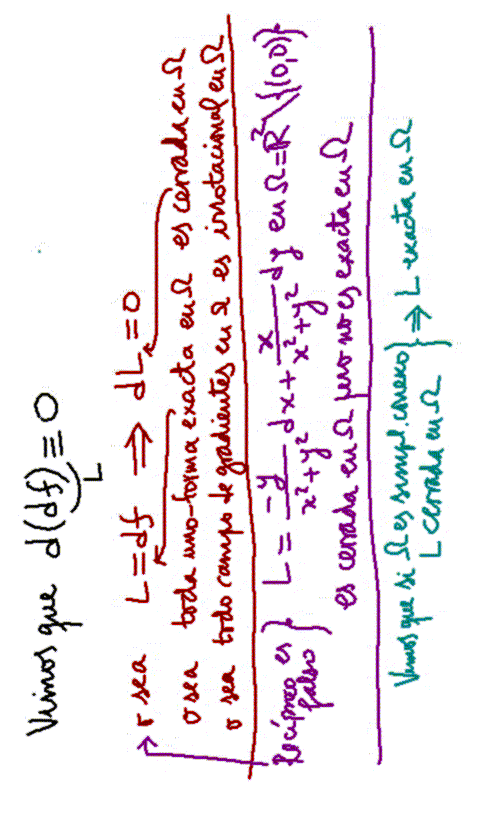 Vimos que d(df) ≡ 0
L
o sea L = df ⇒ dL = 0
o sea toda uno-forma exacta en Ω es cerrada en Ω
o sea todo campo de gradientes en Ω es irrotacional en Ω
Recíproco es falso } L = -y/(x²+y²) dx + x/(x²+y²) dy en Ω = R² \ {(0,0)}
es cerrada en Ω pero no es exacta en Ω
Vimos que si Ω es simpl. conexo
L cerrada en Ω } ⇒ L exacta en Ω